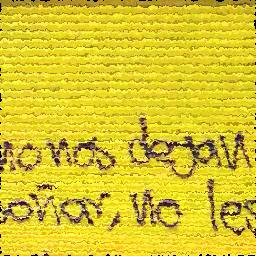 no nos degan
soñar, no les